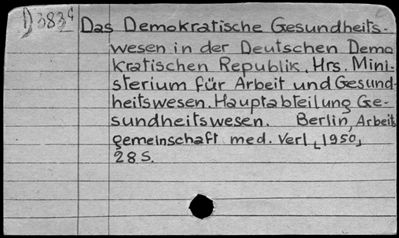 D 383 c Das Demokratische Gesundheits-
wesen in der Deutschen Demo
kratischen Republik. Hrs. Mini-
sterium für Arbeit und Gesund-
heitswesen. Hauptabteilung Ge-
sundheitswesen. Berlin, Arbeit
gemeinschaft med. Verl. [1950]
28 S.